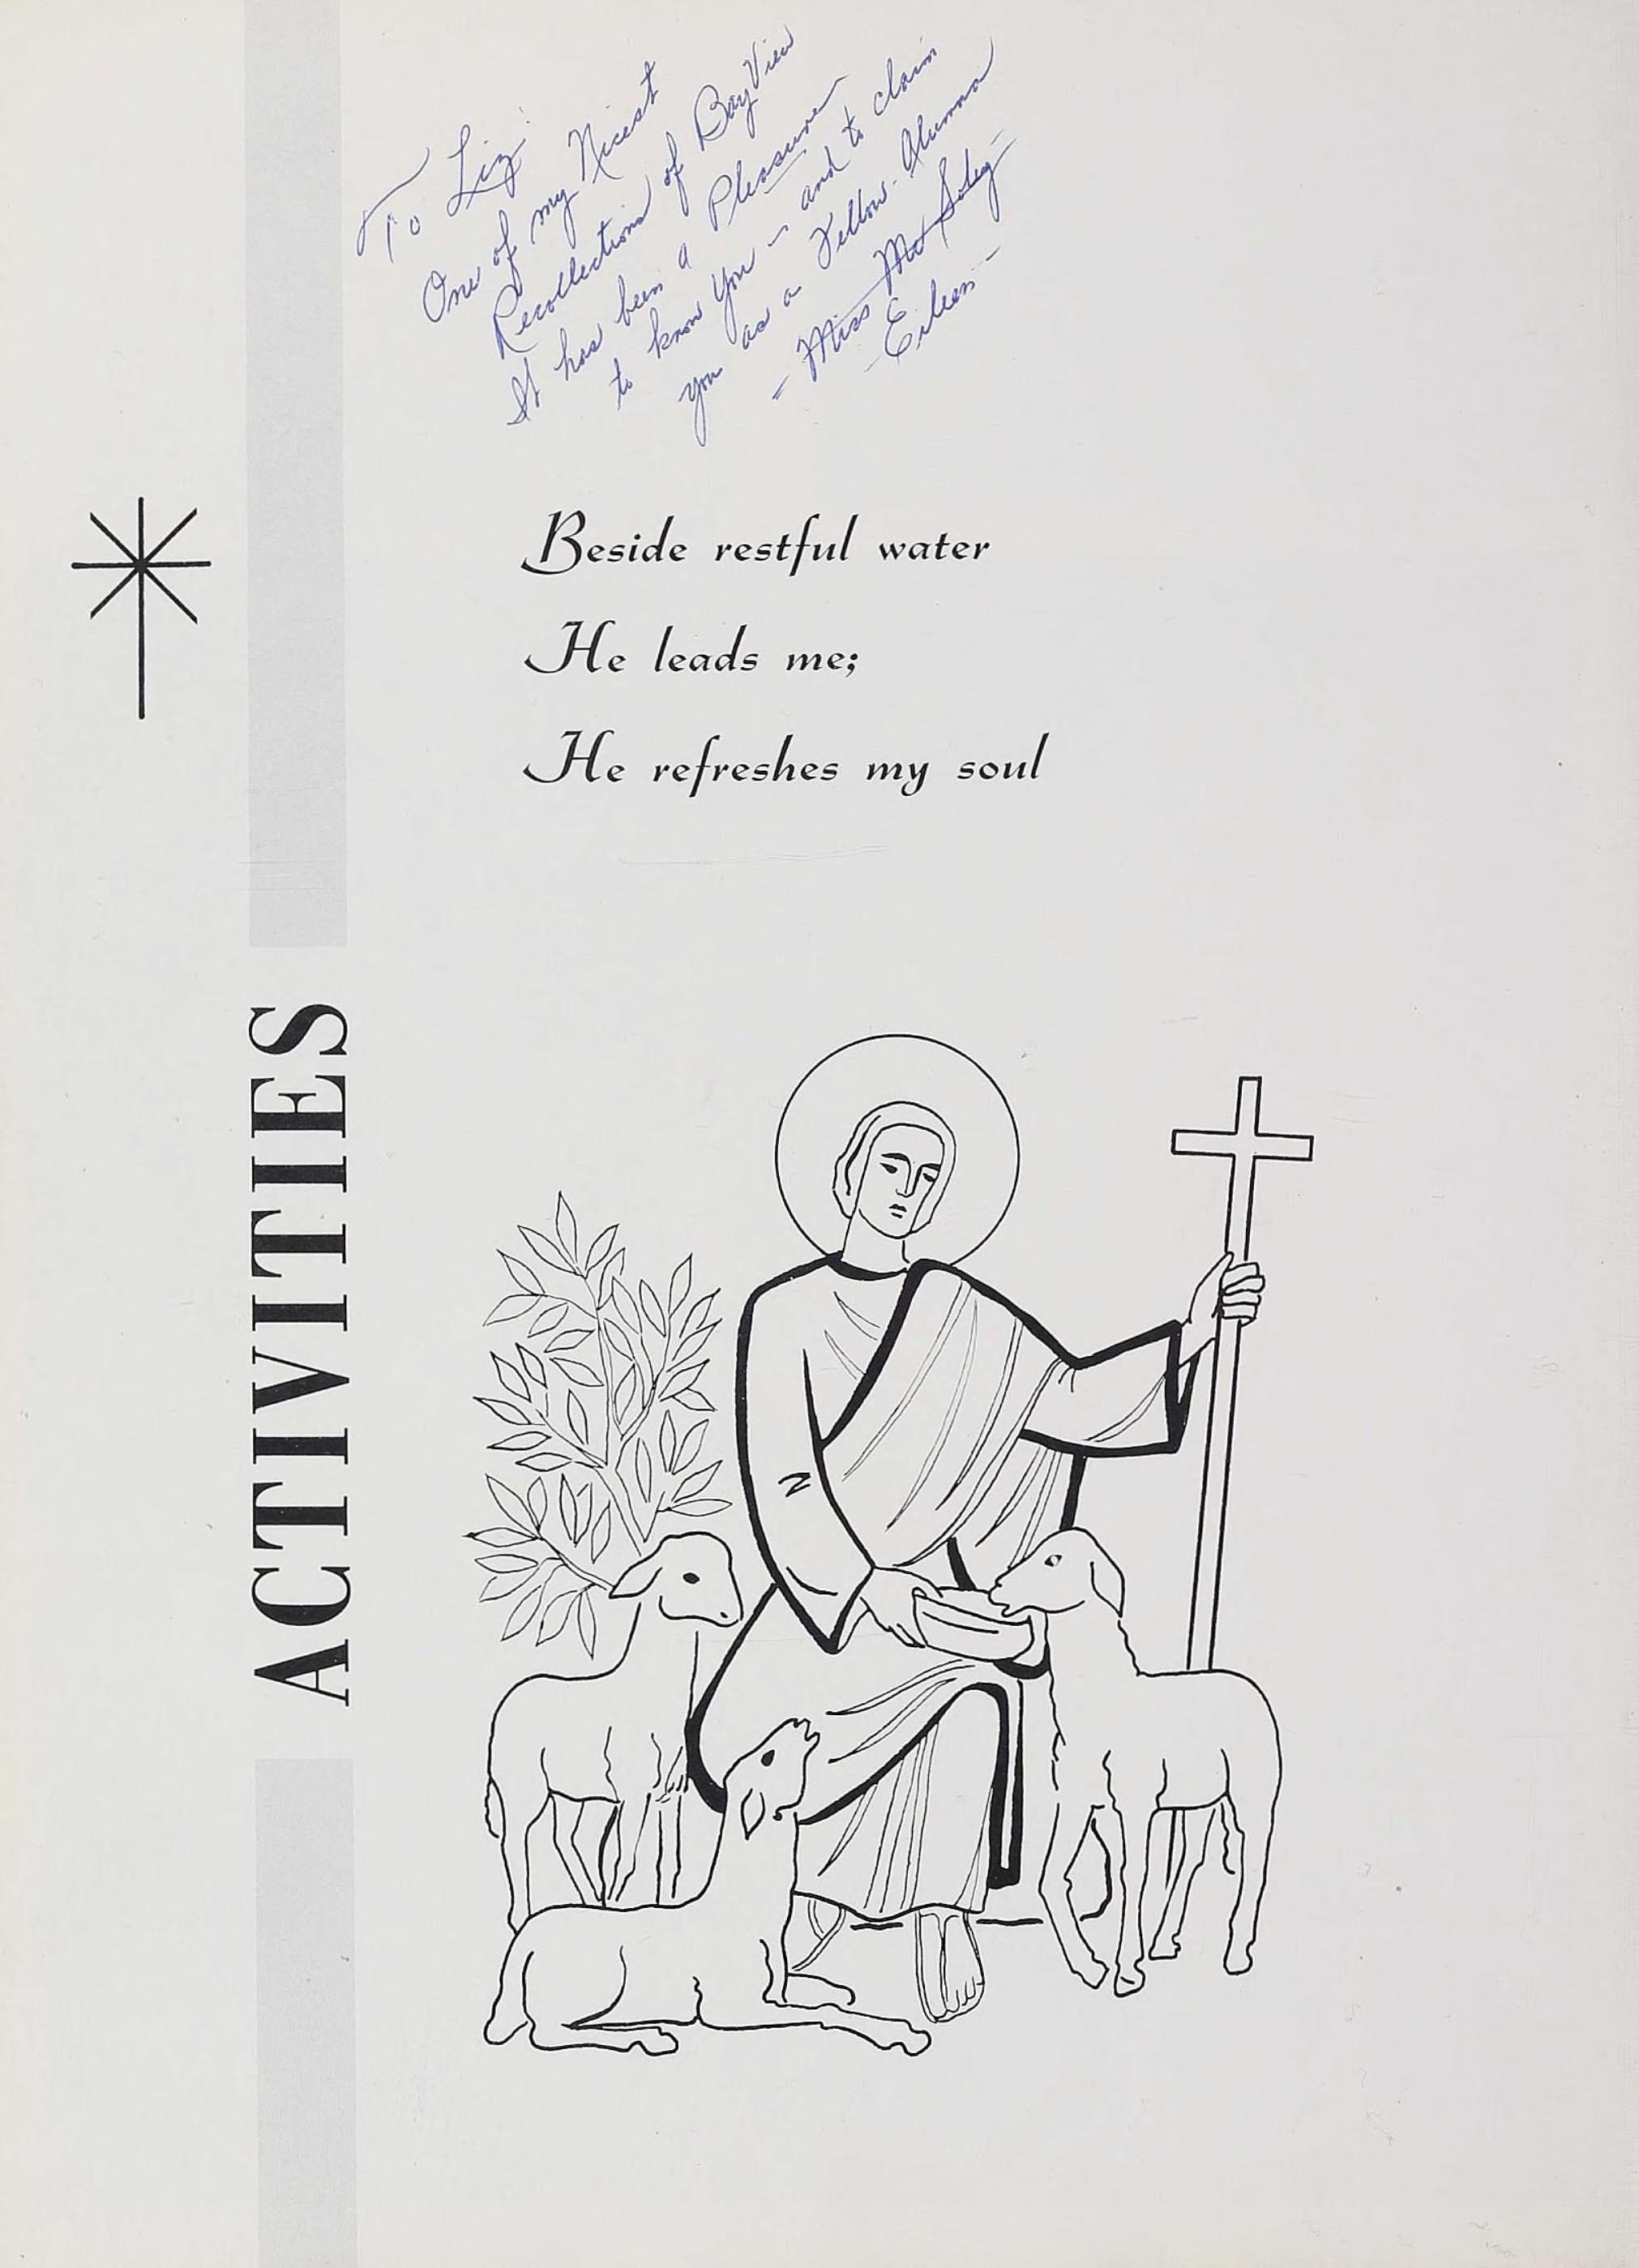 To Liz,
One of my Nicest
Recollections of Bay View
It has been a Pleasure
to know you - and to claim
you as a Fellow-Alumna
- Miss
- Eileen -
Beside restful water
He leads me;
He refreshes my soul
ACTIVITIES